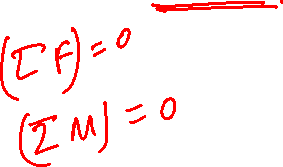 (ΣF) = 0
(ΣM) = 0